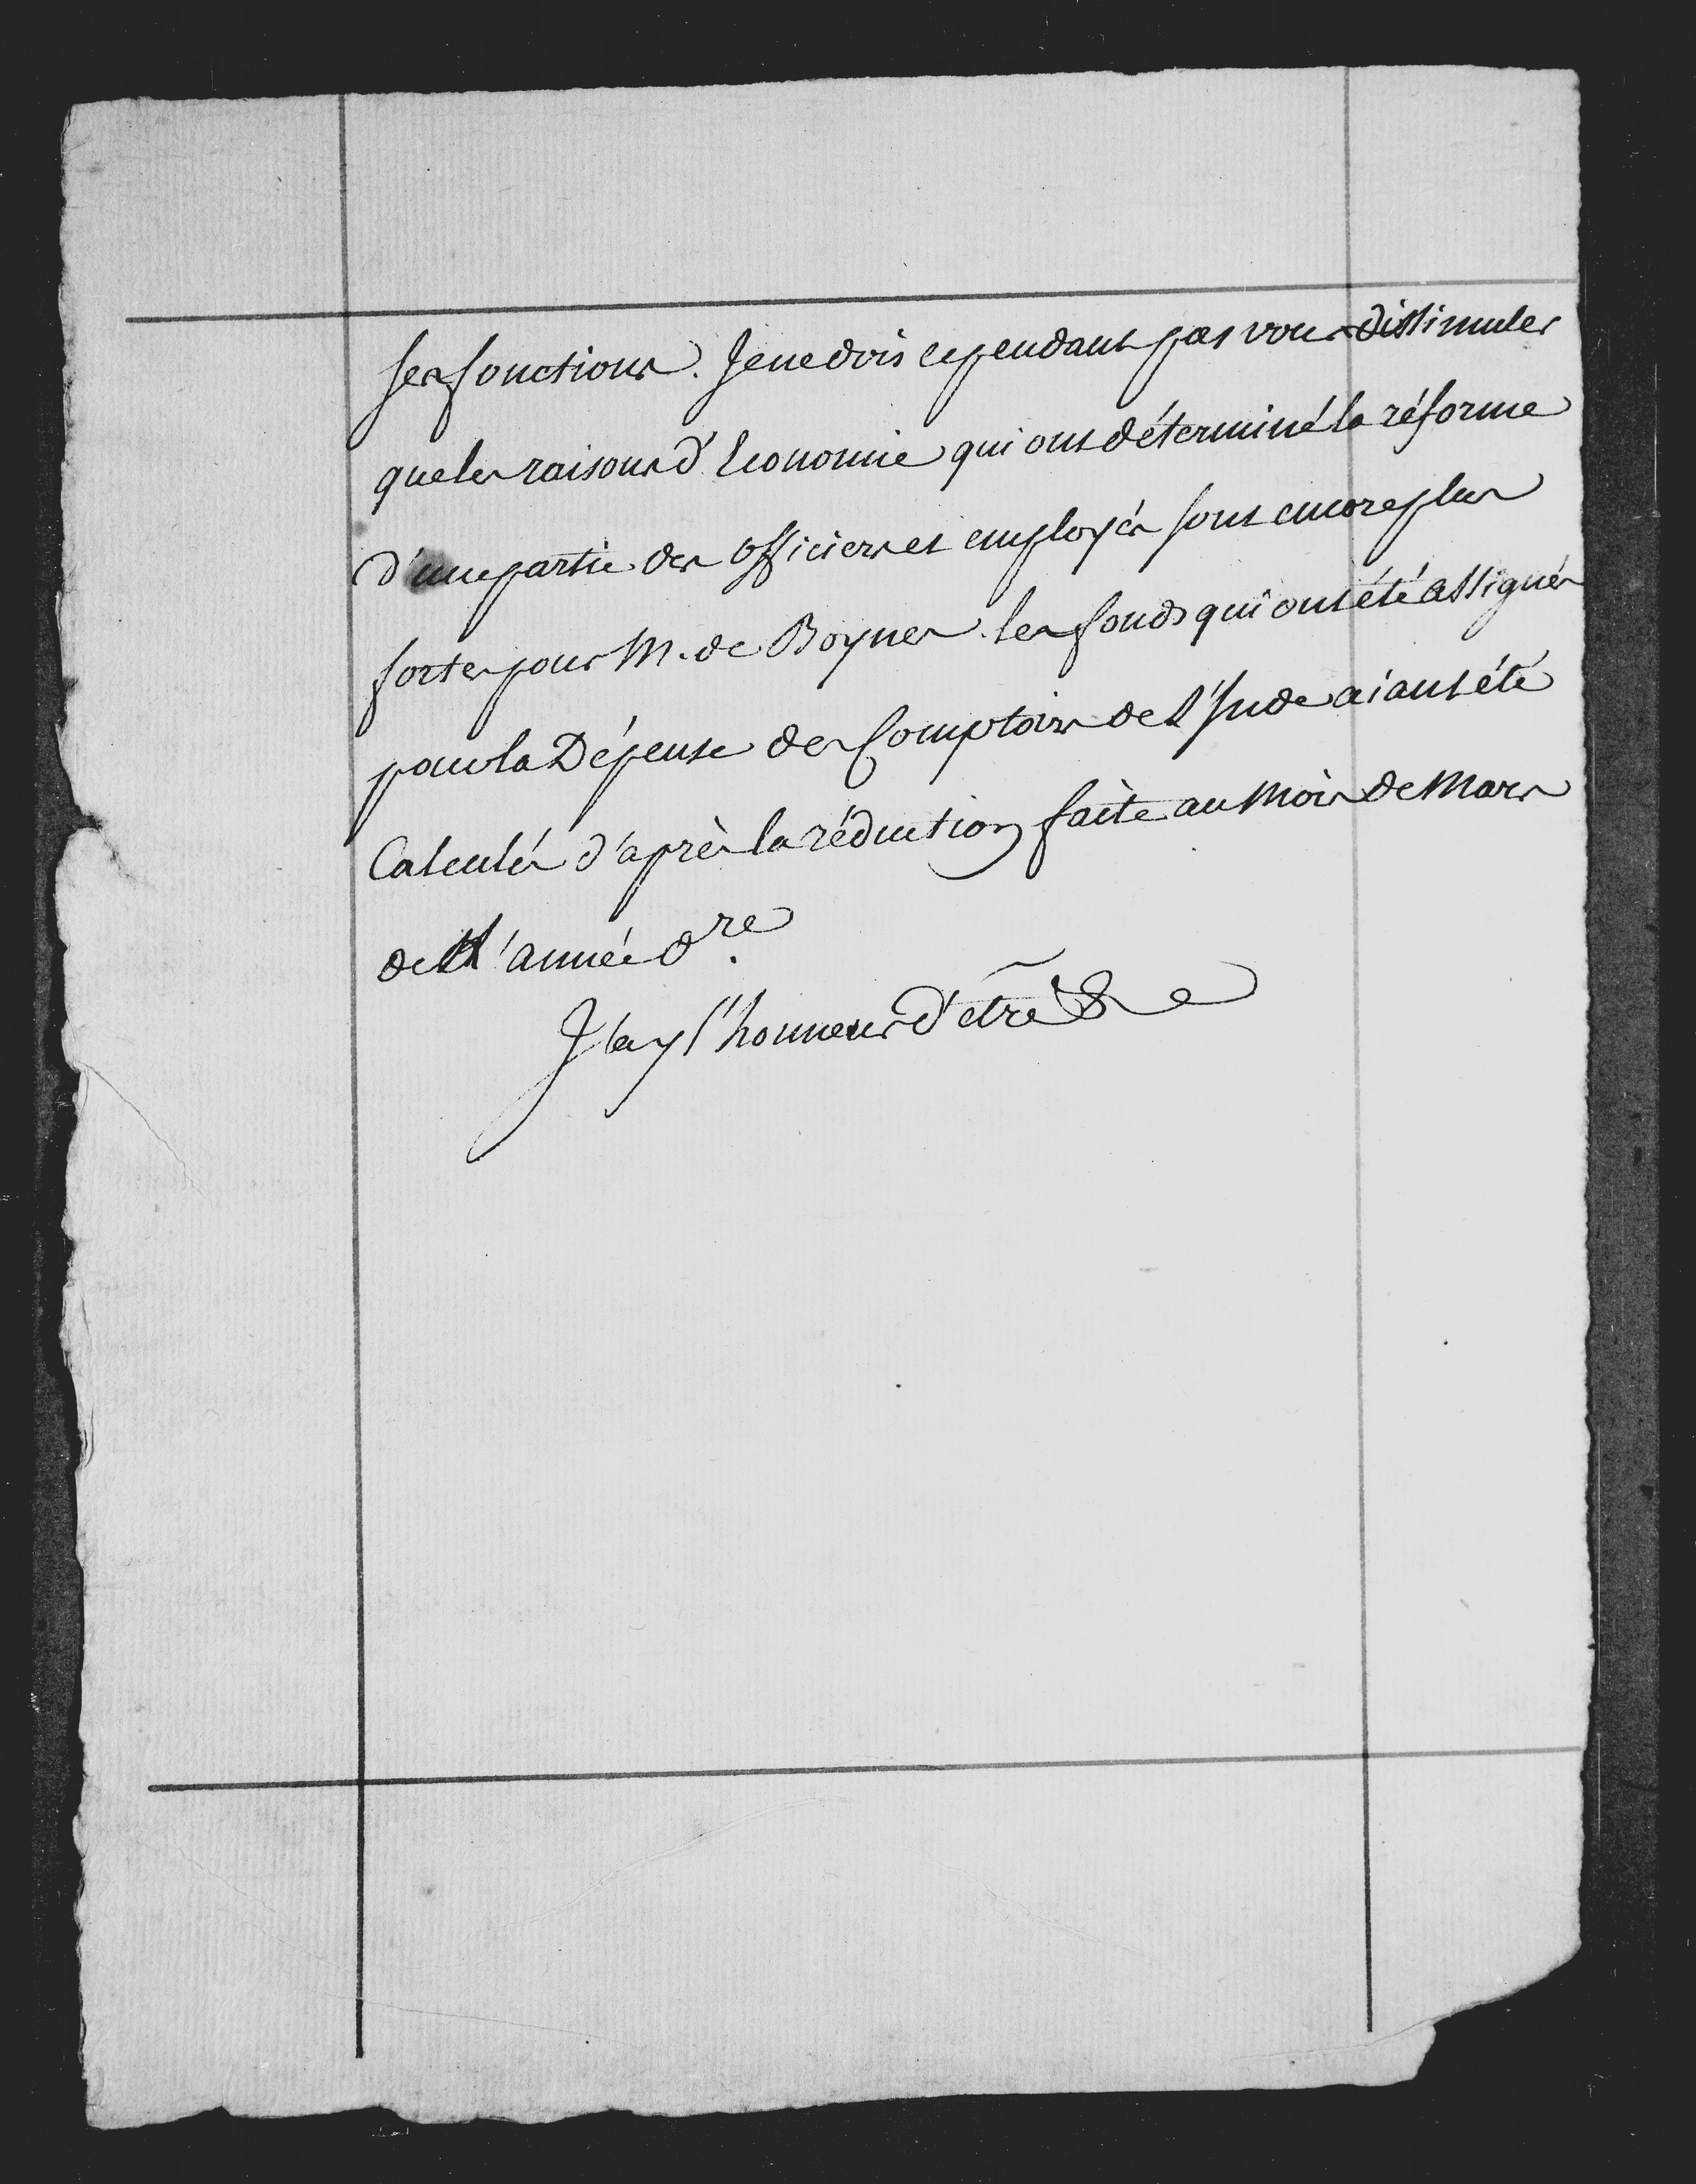 ses fonctions. Je ne dois cependant pas vous dissimuler
que les raisons d'Economie qui ont déterminé la réforme
d'une partie des officiers et employés sont encore plus
fortes pour M. de Boynes. les fonds qui ont été assignés
pour la Dépense des Comptoirs de l'Inde aiant été
Calculés d'après la réduction faite au mois de Mars
de l'année dre.
J'ay l'honneur d'être &e